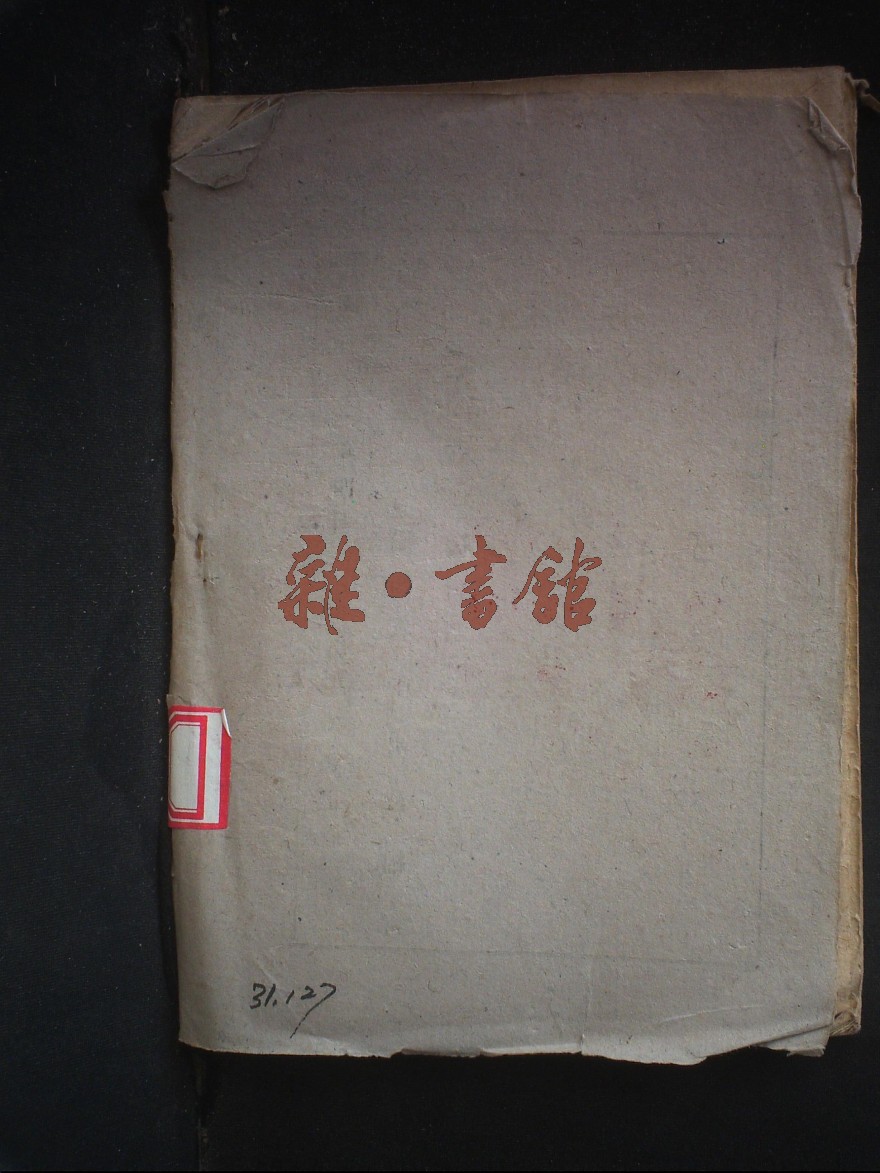 雜·書館
31.127